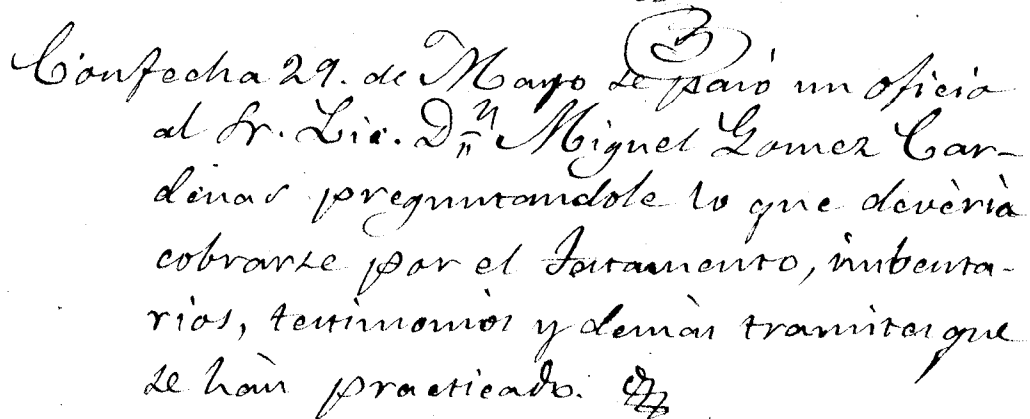 Confecha 29. de Mayo se pasó un oficio
al Sr. Lic. Dn. Miguel Gomez Car-
denas preguntandole lo que devèria
cobrarse por el Testamento, imbenta-
rios, testimoniòs y demàs tramites que
se hàn practicado.